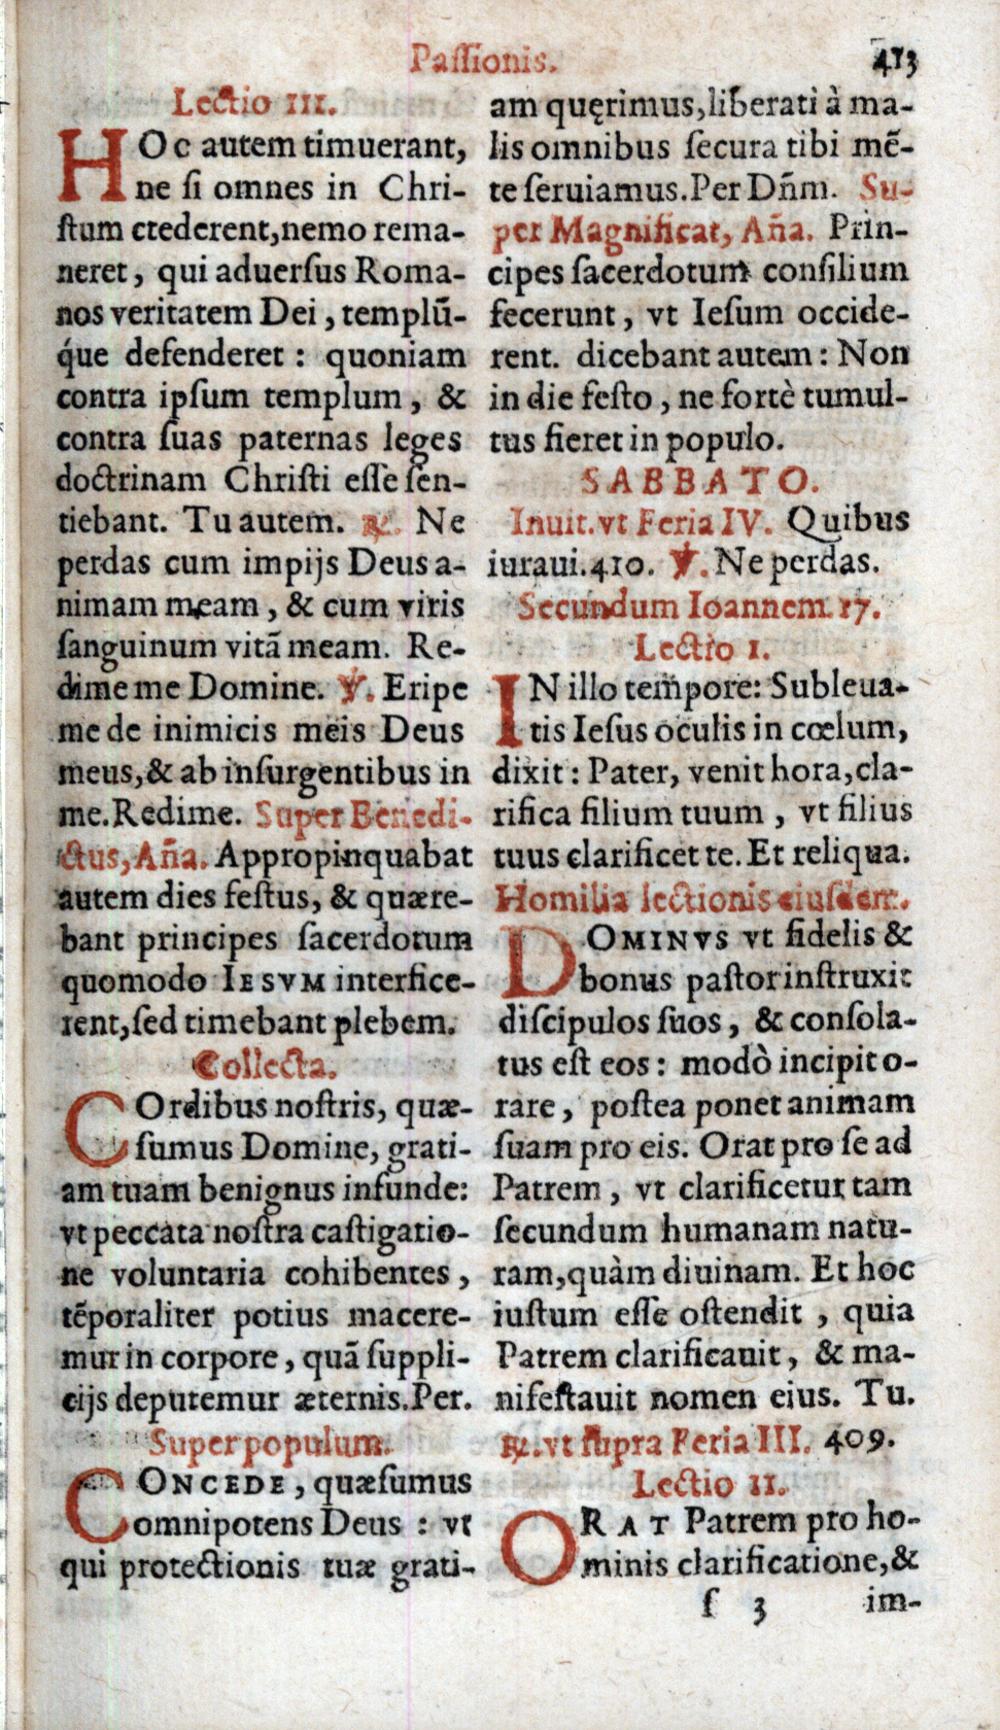 Paſſionis. 413
Lectio III.
HOc autem timuerant,
ne ſi omnes in Chri-
ſtum crederent,nemo rema-
neret, qui aduerſus Roma-
nos veritatem Dei, templū-
q́ue defenderet : quoniam
contra ipſum templum, &
contra ſuas paternas leges
doctrinam Chriſti eſſe ſen-
tiebant. Tu autem. ℟. Ne
perdas cum impijs Deus a-
nimam meam, & cum viris
ſanguinum vitã meam. Re-
dime me Domine. ℣. Eripe
me de inimicis meis Deus
meus,& ab inſurgentibus in
me.Redime. Super Benedi-
ctus, Aña. Appropinquabat
autem dies feſtus, & quære-
bant principes ſacerdotum
quomodo IESVM interfice-
rent,ſed timebant plebem.
Collecta.
COrdibus noſtris, quæ-
ſumus Domine, grati-
am tuam benignus infunde:
vt peccata noſtra caſtigatio-
ne voluntaria cohibentes,
tẽporaliter potius macere-
mur in corpore, quã ſuppli-
cijs deputemur æternis.Per.
Super populum.
CONCEDE, quæſumus
omnipotens Deus : vt
qui protectionis tuæ grati-
am quęrimus,liberati à ma-
lis omnibus ſecura tibi mẽ-
te ſeruiamus.Per Dñm. Su-
per Magnificat, Aña. Prin-
cipes ſacerdotum conſilium
fecerunt, vt Ieſum occide-
rent. dicebant autem : Non
in die feſto, ne fortè tumul-
tus fieret in populo.
SABBATO.
Inuit.vt Feria IV. Quibus
iuraui.410. ℣. Ne perdas.
Secundum Ioannem 17.
Lectio I.
IN illo tempore: Subleua-
tis Ieſus oculis in cœlum,
dixit : Pater, venit hora,cla-
rifica filium tuum, vt filius
tuus clarificet te. Et reliqua.
Homilia lectionis eiuſdem.
DOMINVS vt fidelis &
bonus paſtor inſtruxit
diſcipulos ſuos, & conſola-
tus eſt eos : modò incipit o-
rare, poſtea ponet animam
ſuam pro eis. Orat pro ſe ad
Patrem, vt clarificetur tam
ſecundum humanam natu-
ram,quàm diuinam. Et hoc
iuſtum eſſe oſtendit, quia
Patrem clarificauit, & ma-
nifeſtauit nomen eius. Tu.
℟.vt ſupra Feria III. 409.
Lectio II.
ORAT Patrem pro ho-
minis clarificatione,&
ſ 3 im-